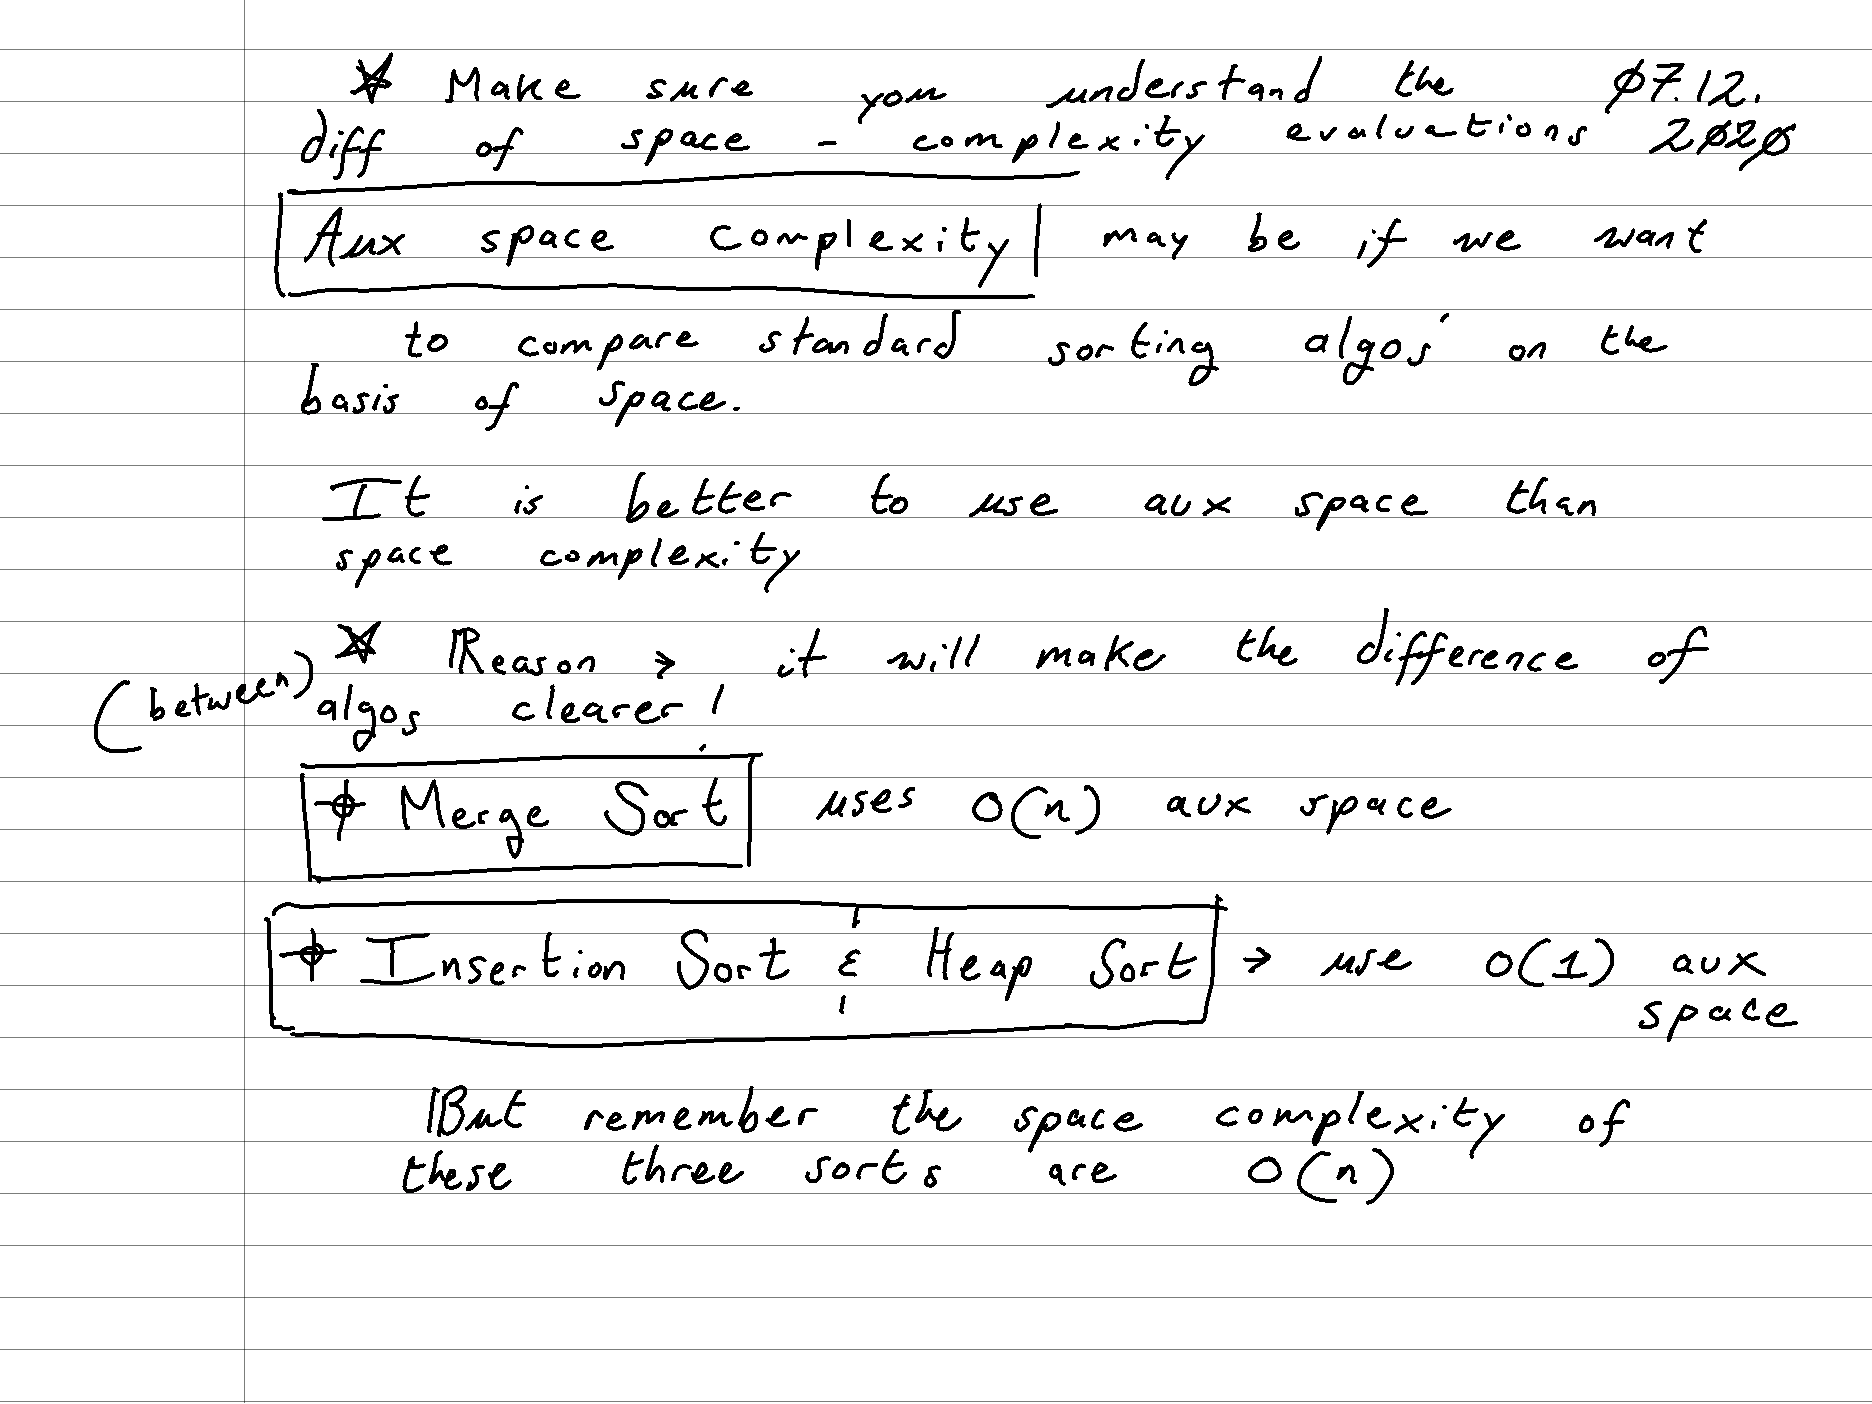 ☆ Make sure you understand the 07.12.
diff of space - complexity evaluations 2020
Aux space complexity may be if we want
to compare standard sorting algos' on the
basis of space.
It is better to use aux space than
space complexity
☆ Reason → it will make the difference of
(between) algos clearer!
Merge Sort uses O(n) aux space
Insertion Sort & Heap Sort → use O(1) aux
space
But remember the space complexity of
these three sorts are O(n)